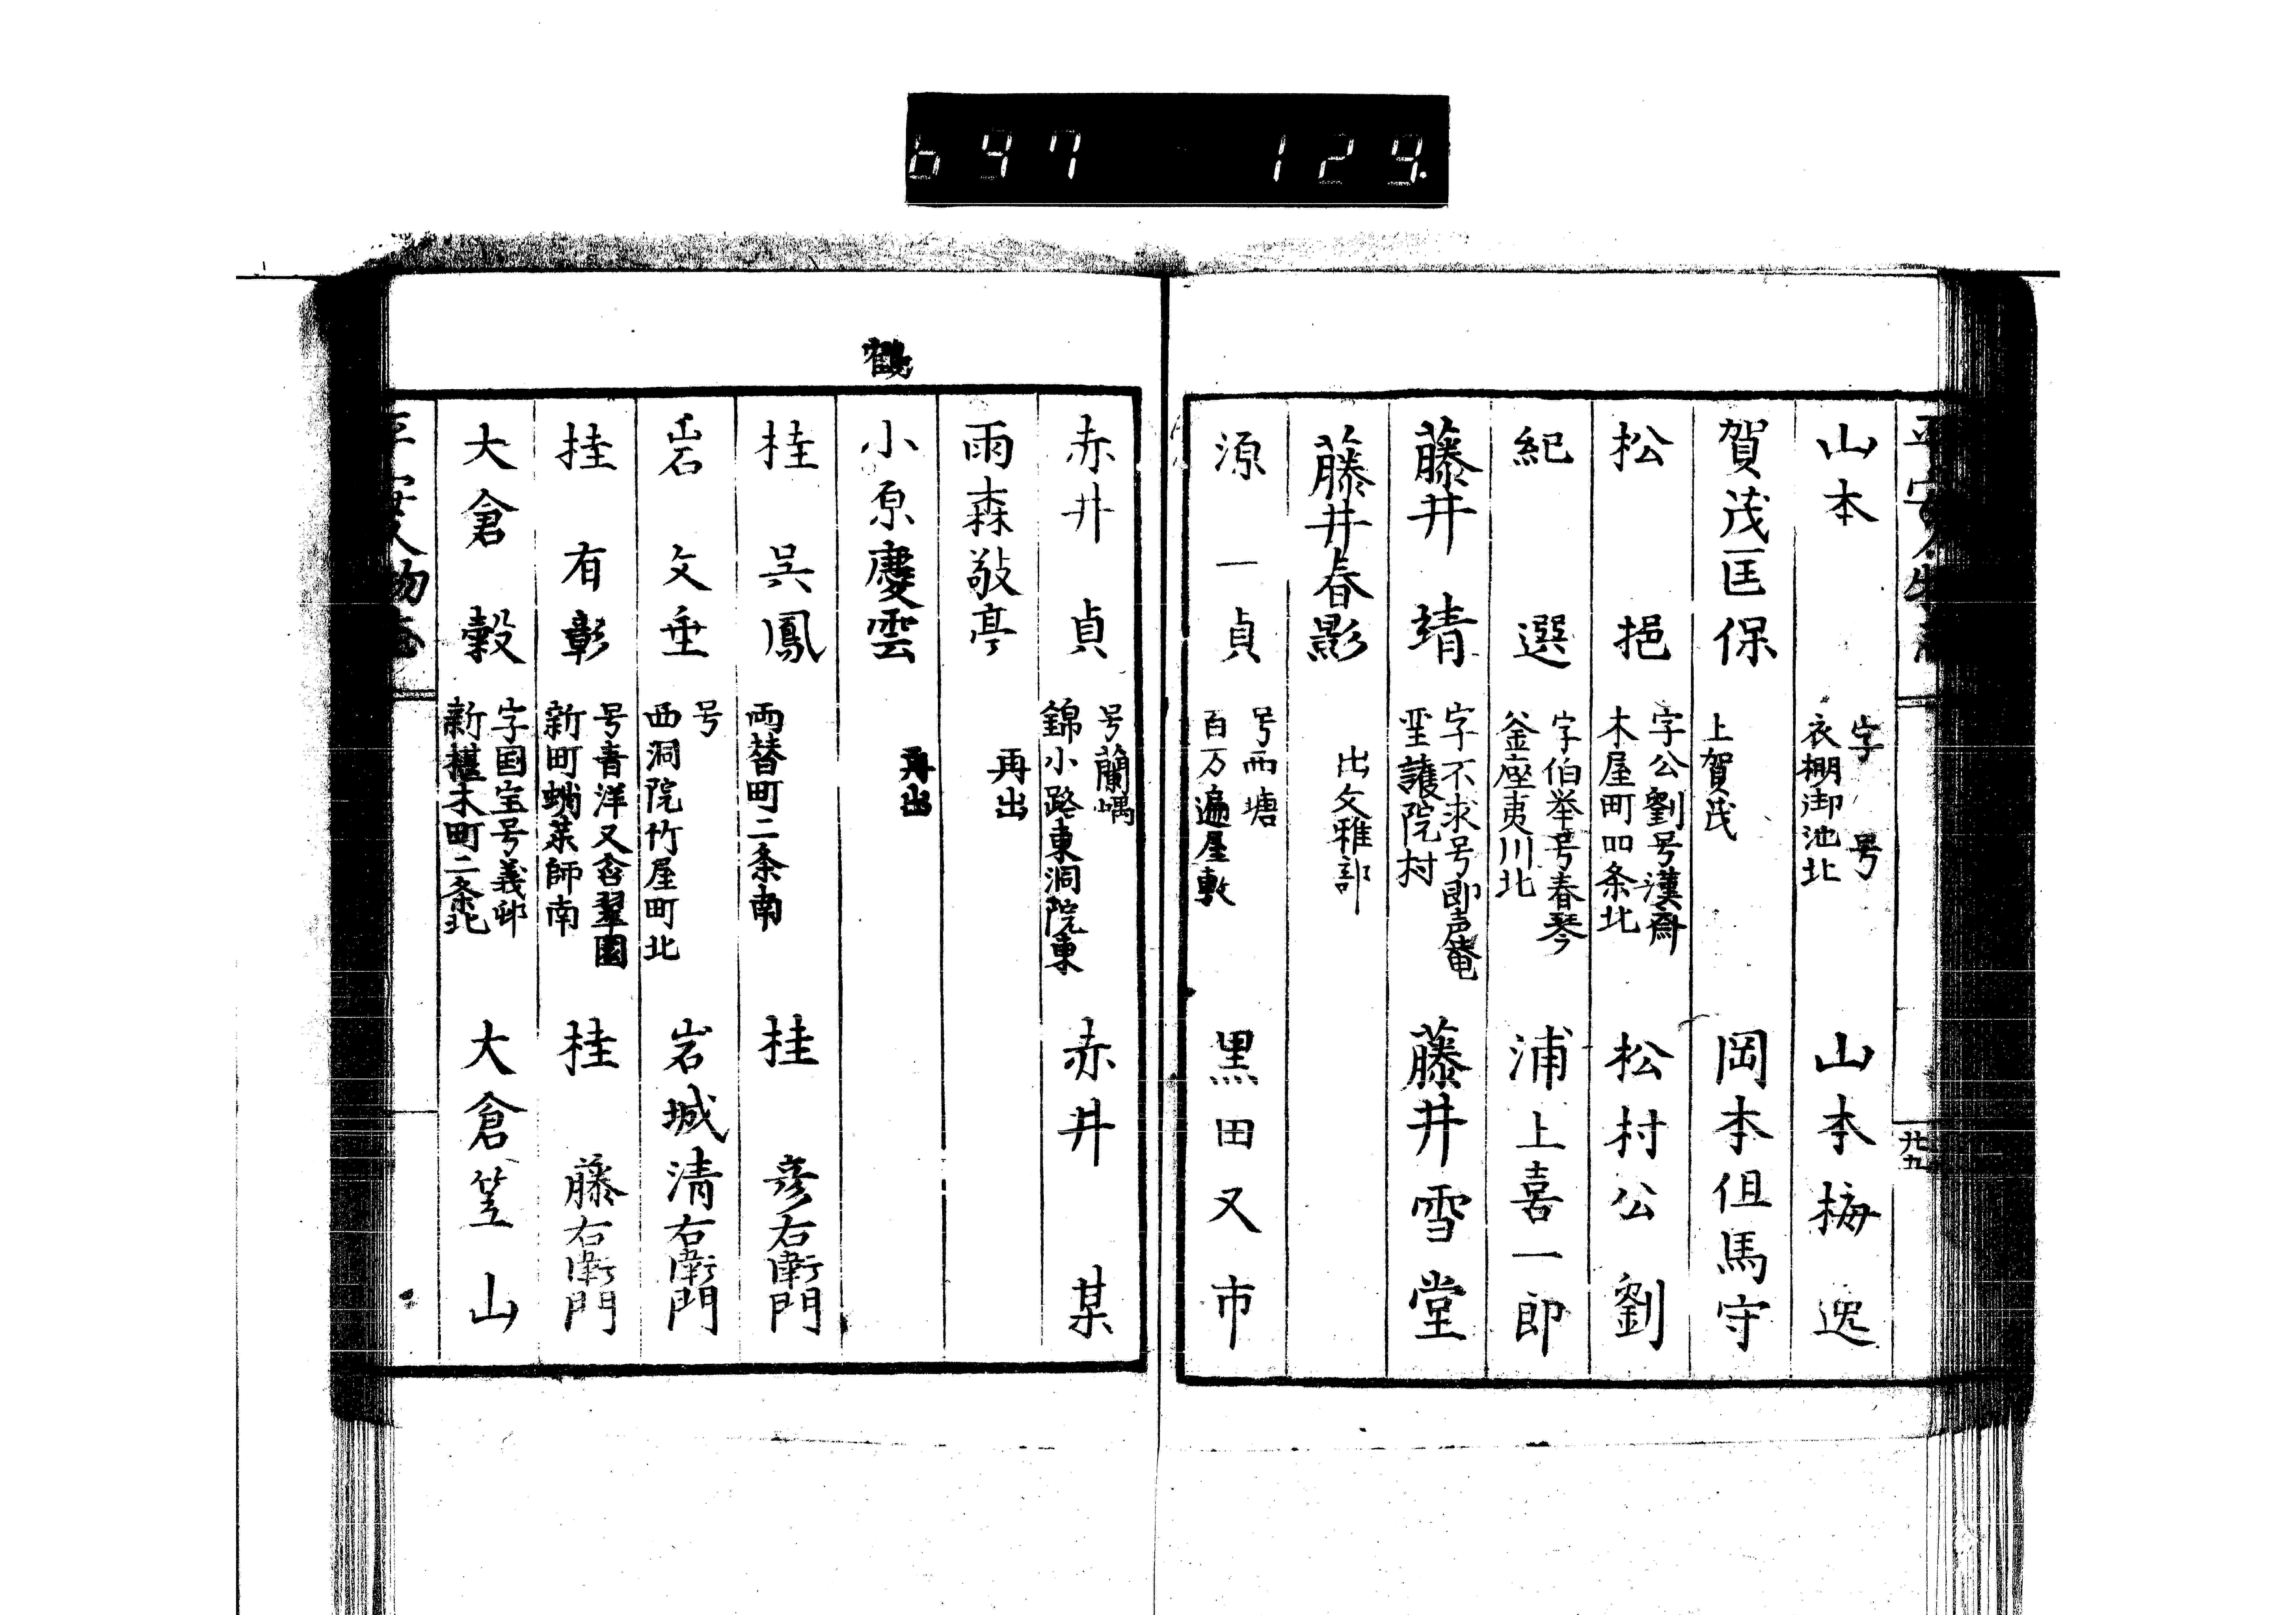 697 129.
平安人物志
廿五
山本
字 号
衣棚御池北
山本梅逸
賀茂匡保
上賀茂
岡本但馬守
松 挹
字公劉号漢齋
木屋町四条北
松村公劉
紀 選
字伯挙号春琴
釜座夷川北
浦上喜一郎
藤井 靖
字不求号即声菴
聖護院村
藤井雪堂
藤井春影
出文雅部
源一貞
号西塘
百万遍屋敷
黒田又市
赤井 貞
号蘭嵎
錦小路東洞院東
赤井 某
雨森敬亭
再出
鶴
小原慶雲
再出
桂 呉鳳
両替町二条南
桂 彦右衛門
岩 文垂
号
西洞院竹屋町北
岩城清右衛門
桂 有彰
号青洋又含翠園
新町蛸薬師南
桂 藤右衛門
大倉 穀
字国宝号義邨
新椹木町二条北
大倉笠山
平安人物志